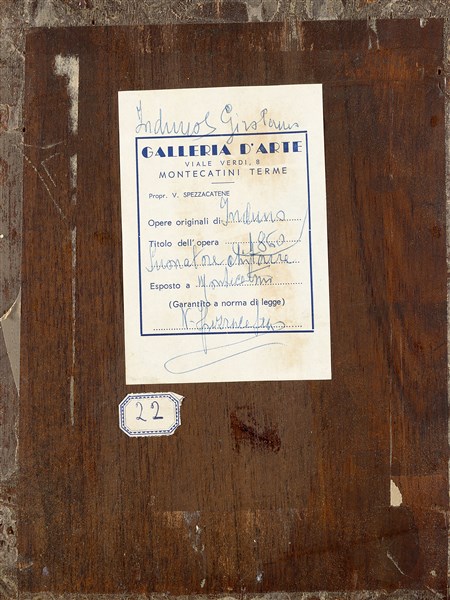 Induno Girolamo
GALLERIA D'ARTE
VIALE VERDI, 8
MONTECATINI TERME
Propr. V. SPEZZACATENE
Opere originali di Induno
Titolo dell'opera 1850
Suonatore chitarra
Esposto a Montecatini
(Garantito a norma di legge)
V. Spezzacatene
22